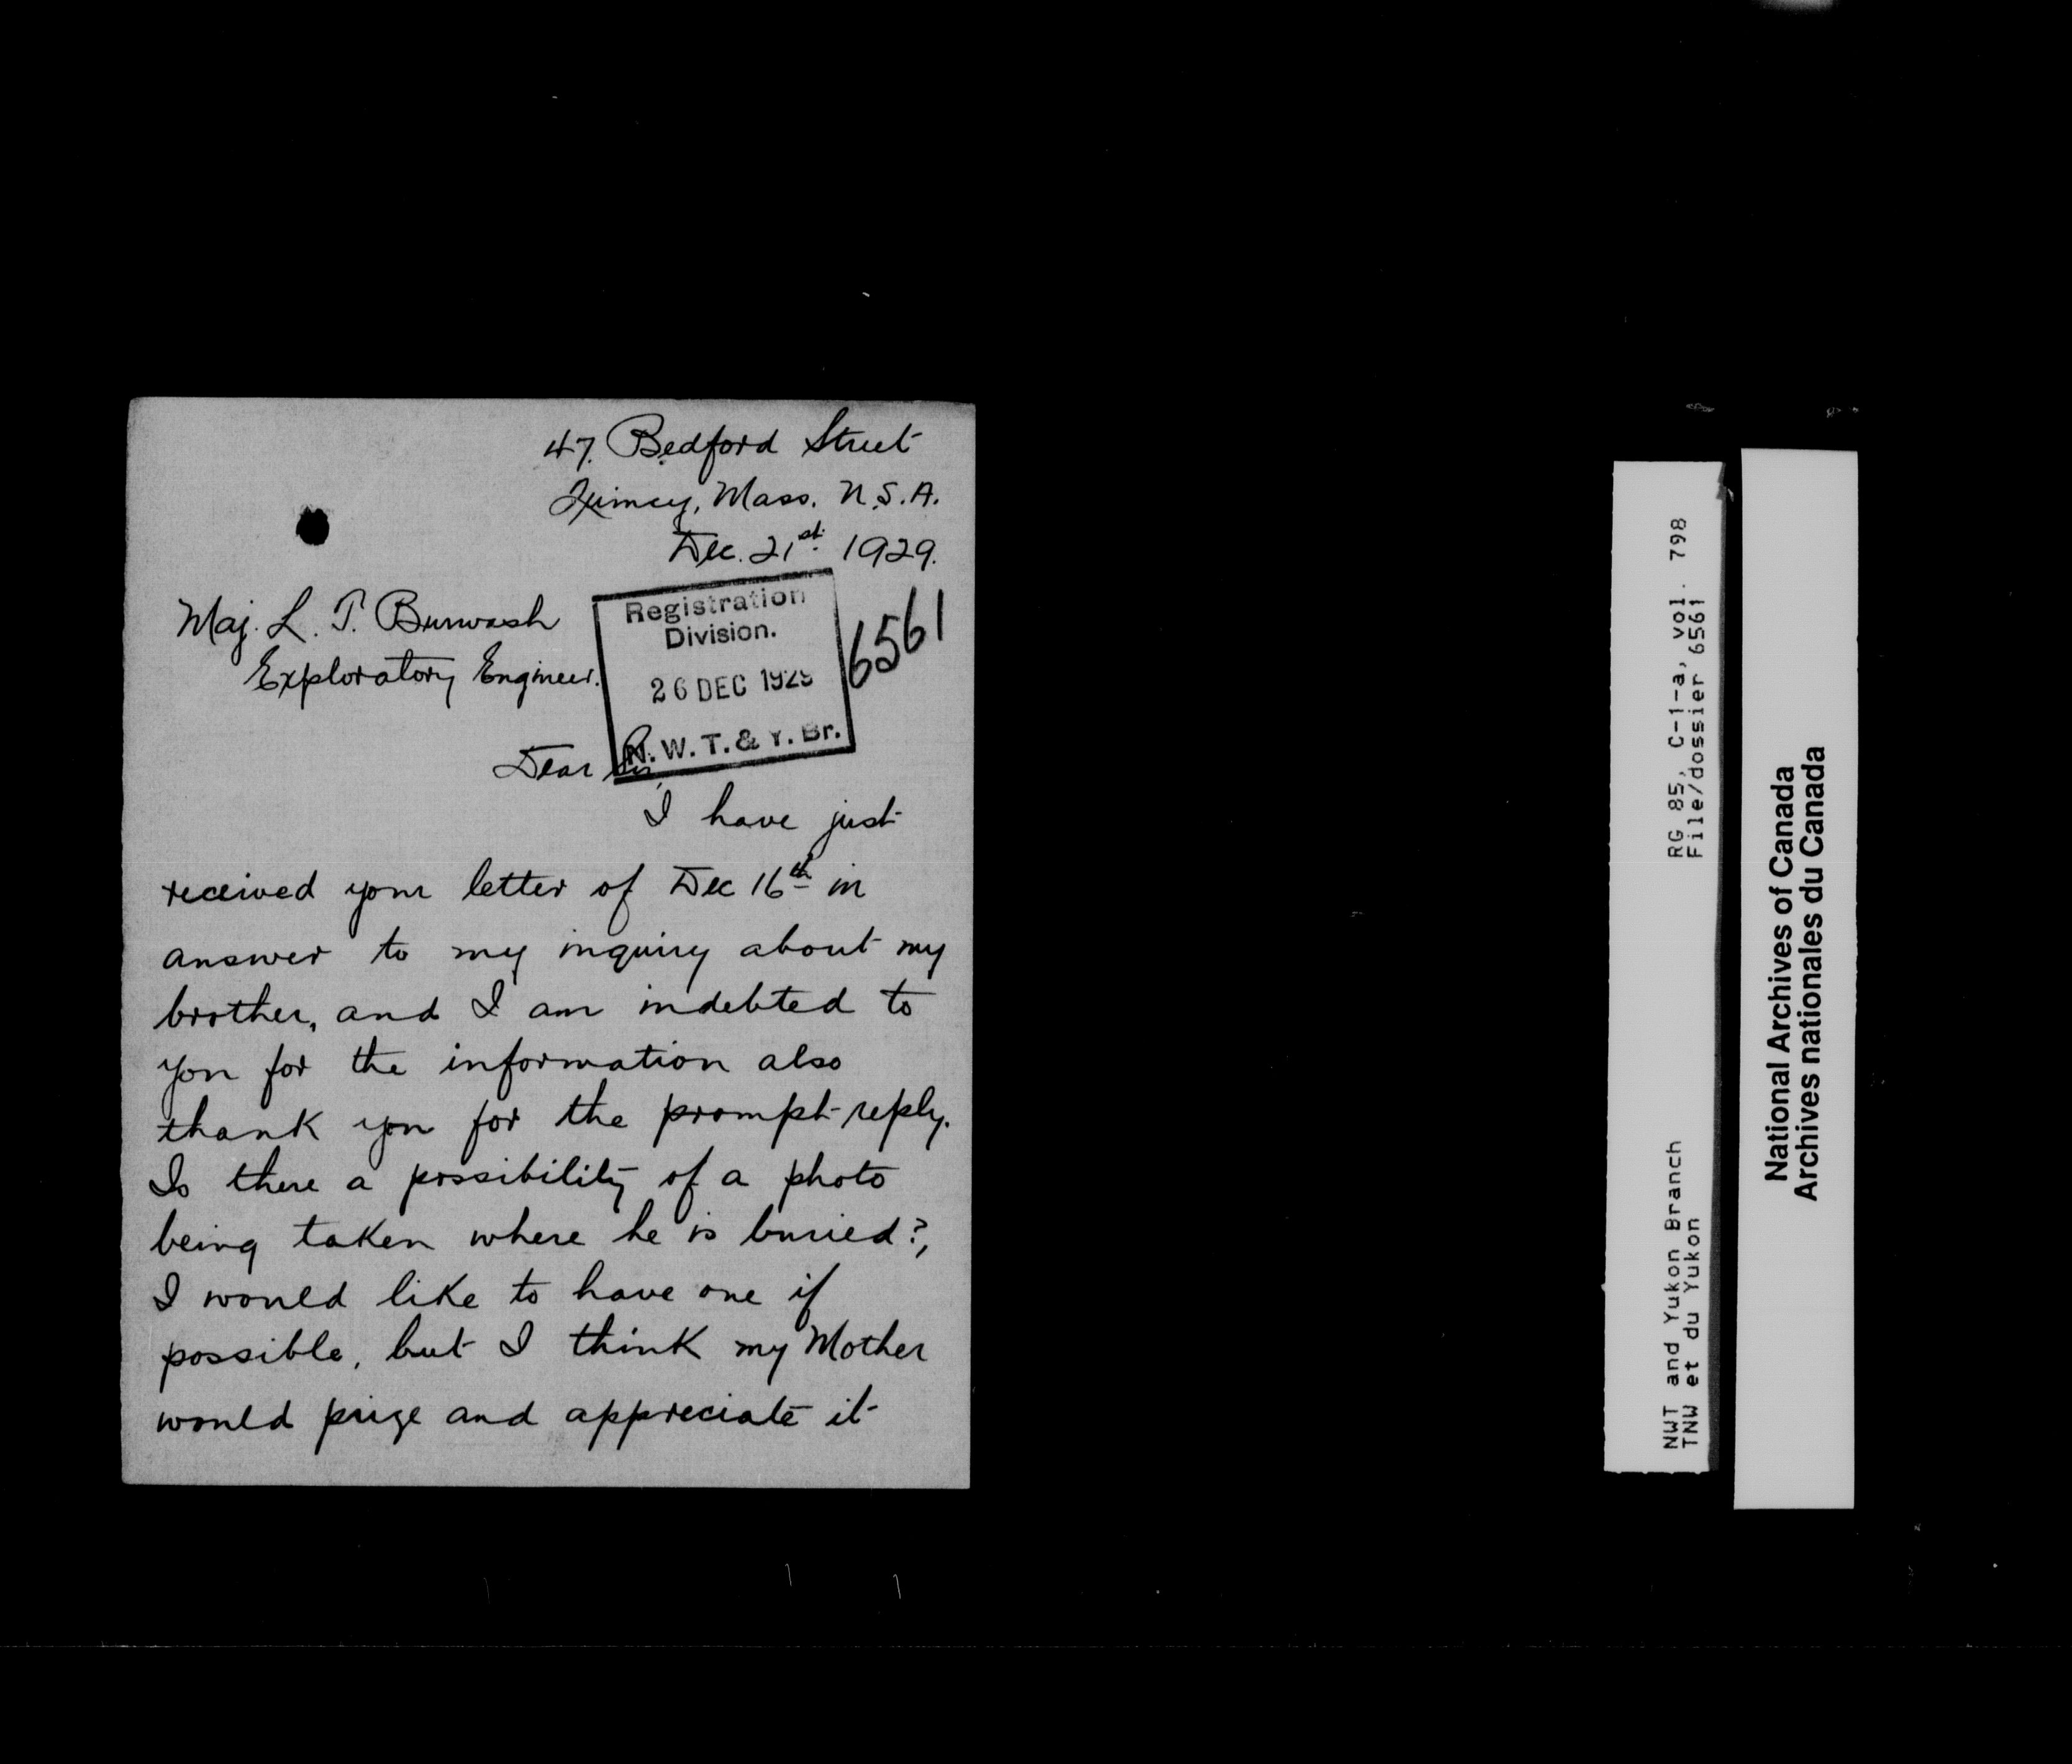 47 Bedford Street
Quincy, Mass. U.S.A.
Dec. 21st 1929.
Maj. L. T. Burwash
Exploratory Engineer.
Registration
Division.
26 DEC 1929
N. W. T. & Y. Br.
6561
Dear Sir,
I have just
received your letter of Dec 16th in
answer to my inquiry about my
brother, and I am indebted to
you for the information also
thank you for the prompt reply.
Is there a possibility of a photo
being taken where he is buried?,
I would like to have one if
possible, but I think my Mother
would prize and appreciate it
NWT and Yukon Branch RG 85, C-1-a, vol. 798
TNW et du Yukon File/dossier 6561
National Archives of Canada
Archives nationales du Canada